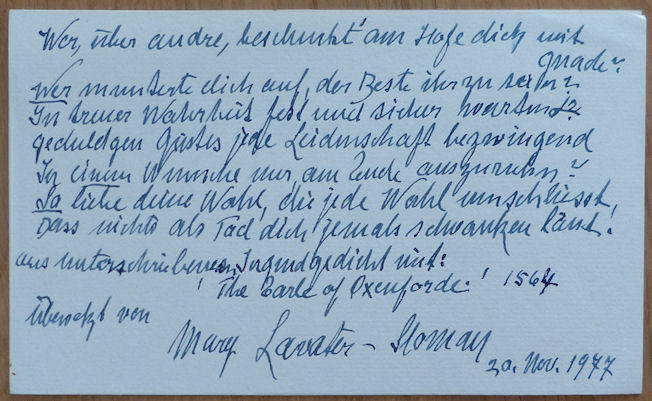 Wer, über andre, beschenkt' am Hofe dich mit
Gnade?
Wer munterte dich auf, der Beste ihr zu sein?
In treuer Wahrheit fest und sicher wartend?
geduldgen Geistes jede Leidenschaft bezwingend
In einem Wunsche nur, am Ende auszuruhn?
So liebe deine Wahl, die jede Wahl umschliesst,
Dass nichts als Tod dich jemals schwanken lässt!
aus unterschriebenem Jugendgedicht mit:
"The Earle of Oxenforde." 1564
Übersetzt von
Mary Lavater-Sloman
20. Nov. 1977